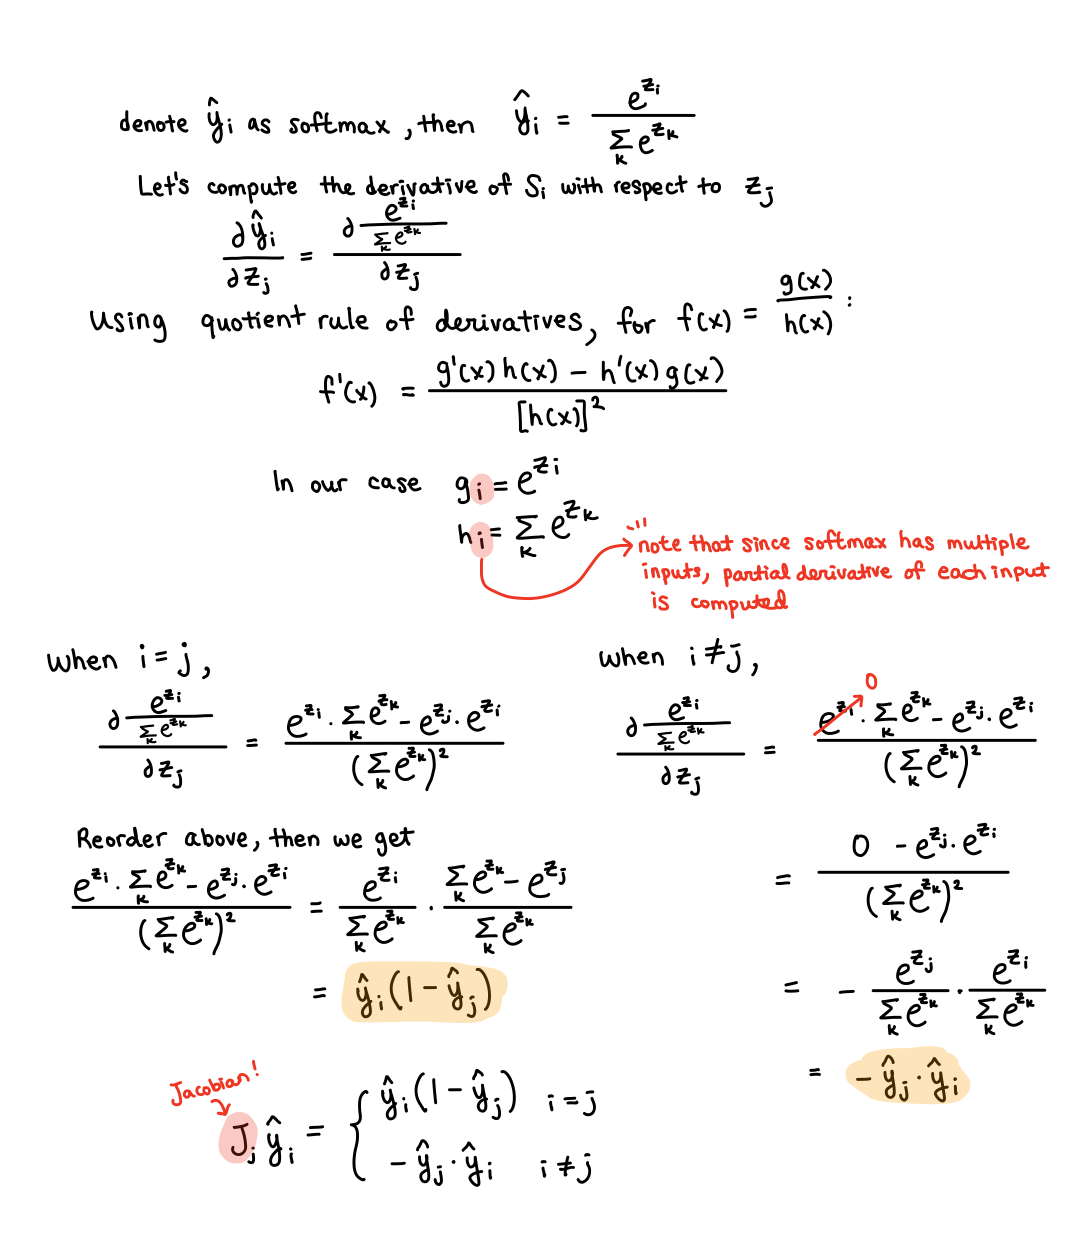 denote ŷᵢ as softmax, then ŷᵢ = e^{zᵢ} / Σₖ e^{zₖ}
Let's compute the derivative of Sᵢ with respect to zⱼ
∂ŷᵢ / ∂zⱼ = ∂ (e^{zᵢ} / Σₖ e^{zₖ}) / ∂zⱼ
Using quotient rule of derivatives, for f(x) = g(x) / h(x) :
f'(x) = (g'(x) h(x) − h'(x) g(x)) / [h(x)]²
In our case gᵢ = e^{zᵢ}
hᵢ = Σₖ e^{zₖ}
note that since softmax has multiple
inputs, partial derivative of each input
is computed
When i = j,
∂ (e^{zᵢ} / Σₖ e^{zₖ}) / ∂zⱼ = (e^{zᵢ} · Σₖ e^{zₖ} − e^{zⱼ} · e^{zᵢ}) / (Σₖ e^{zₖ})²
Reorder above, then we get
(e^{zᵢ} · Σₖ e^{zₖ} − e^{zⱼ} · e^{zᵢ}) / (Σₖ e^{zₖ})² = e^{zᵢ} / Σₖ e^{zₖ} · (Σₖ e^{zₖ} − e^{zⱼ}) / Σₖ e^{zₖ}
= ŷᵢ(1 − ŷⱼ)
when i ≠ j,
0
∂ (e^{zᵢ} / Σₖ e^{zₖ}) / ∂zⱼ = (e^{zᵢ} · Σₖ e^{zₖ} − e^{zⱼ} · e^{zᵢ}) / (Σₖ e^{zₖ})²
= (0 − e^{zⱼ} · e^{zᵢ}) / (Σₖ e^{zₖ})²
= − e^{zⱼ} / Σₖ e^{zₖ} · e^{zᵢ} / Σₖ e^{zₖ}
= − ŷⱼ · ŷᵢ
Jacobian!
Jⱼ ŷᵢ = { ŷᵢ(1 − ŷⱼ) i = j
− ŷⱼ · ŷᵢ i ≠ j